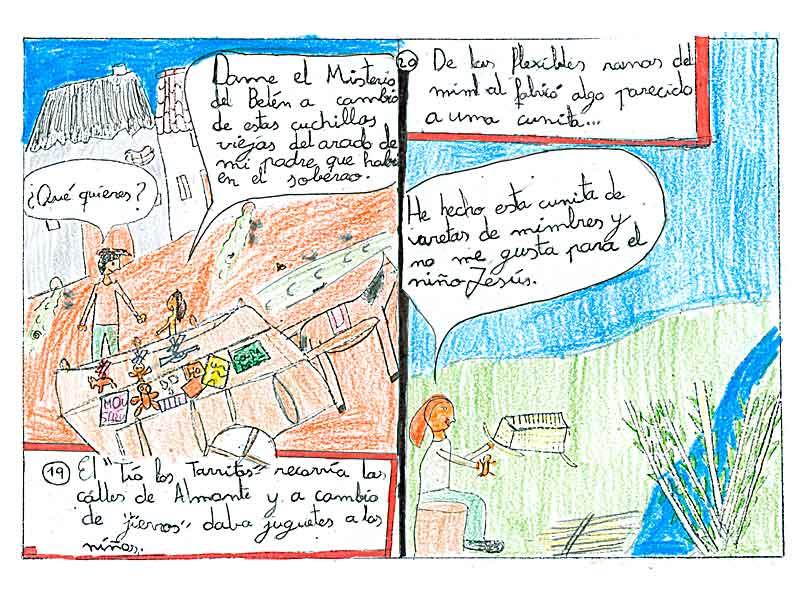 Dame el Misterio
del Belén a cambio
de estas cuchillas
viejas del arado de
mi padre, que había
en el soberao.
¿Qué quieres?
19 El "Tío las Tarritas" recorría las
calles de Almonte y a cambio
de "jierros" daba juguetes a los
niños.
20 De las flexibles ramas del
mimbral fabricó algo parecido
a una cunita...
He hecho esta cunita de
varetas de mimbres y
no me gusta para el
niño Jesús.